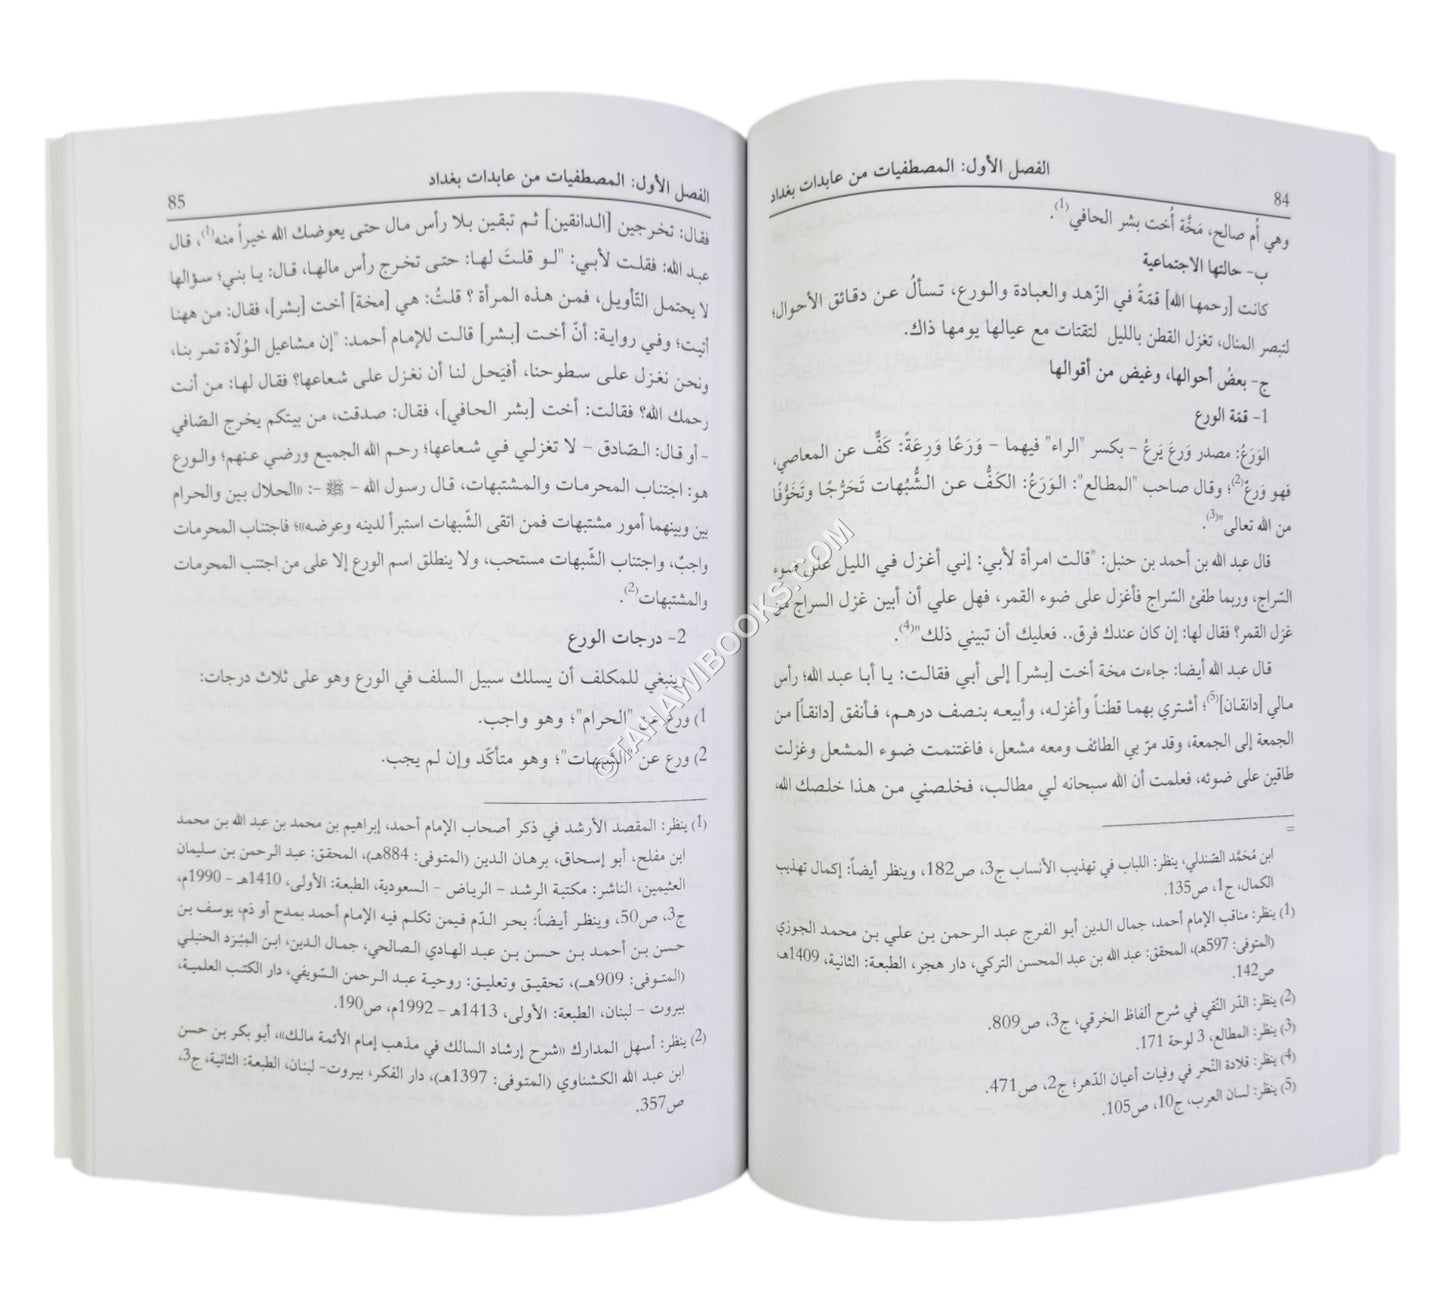 84
الفصل الأول: المصطفيات من عابدات بغداد
وهي أُم صالح، مَخَّة أُخت بشر الحافي(1).
ب- حالتها الاجتماعية
كانت [رحمها الله] قمّة في الزّهد والعبادة والورع، تسألُ عن دقائق الأحوال؛
لتبصر المنال، تغزل القطن بالليل لتقتات مع عيالها يومها ذاك.
ج- بعضُ أحوالها، وغيض من أقوالها
1- قمّة الورع
الوَرَعُ: مصدر وَرِعَ يَرِعُ – بكسر "الراء" فيهما – وَرَعًا وَرِعَةً: كَفٌّ عن المعاصي،
فهو وَرِعٌ(2)؛ وقال صاحب "المطالع": الوَرَعُ: الكَفُّ عن الشُّبُهات تَحَرُّجًا وتَخَوُّفًا
من الله تعالى"(3).
قال عبد الله بن أحمد بن حنبل: "قالت امرأة لأبي: إني أغزل في الليل على ضوء
السّراج، وربما طفئ السّراج فأغزل على ضوء القمر، فهل علي أن أبين غزل السراج من
غزل القمر؟ فقال لها: إن كان عندك فرق.. فعليك أن تبيني ذلك"(4).
قال عبد الله أيضا: جاءت مخة أخت [بشر] إلى أبي فقالت: يا أبا عبد الله؛ رأس
مالي [دانقان](5)؛ أشتري بهما قطناً وأغزله، وأبيعه بنصف درهم، فأنفق [دانقاً] من
الجمعة إلى الجمعة، وقد مرّ بي الطائف ومعه مشعل، فاغتنمت ضوء المشعل وغزلت
طاقين على ضوئه، فعلمت أن الله سبحانه لي مطالب، فخلصني من هذا خلصك الله،
=
ابن مُحَمَّد الصّندلي، ينظر: اللباب في تهذيب الأنساب ج3، ص182، وينظر أيضاً: إكمال تهذيب
الكمال، ج1، ص135.
(1) ينظر: مناقب الإمام أحمد، جمال الدين أبو الفرج عبد الرحمن بن علي بن محمد الجوزي
(المتوفى: 597هـ)، المحقق: عبد الله بن عبد المحسن التركي، دار هجر، الطبعة: الثانية، 1409هـ
ص142.
(2) ينظر: الدّر النّقي في شرح ألفاظ الخرقي، ج3، ص809.
(3) ينظر: المطالع، 3 لوحة 171.
(4) ينظر: قلادة النّحر في وفيات أعيان الدّهر؛ ج2، ص471.
(5) ينظر: لسان العرب، ج10، ص105.
الفصل الأول: المصطفيات من عابدات بغداد
85
فقال: تخرجين [الدانقين] ثم تبقين بلا رأس مال حتى يعوضك الله خيراً منه(1)، قال
عبد الله: فقلت لأبي: "لو قلتَ لها: حتى تخرج رأس مالها، قال: يا بني؛ سؤالها
لا يحتمل التّأويل، فمن هذه المرأة ؟ قلتُ: هي [مخة] أخت [بشر]، فقال: من ههنا
أتيت؛ وفي رواية: أنّ أخت [بشر] قالت للإمام أحمد: "إن مشاعيل الوُلّاة تمر بنا،
ونحن نغزل على سطوحنا، أفيَحل لنا أن نغزل على شعاعها؟ فقال لها: من أنت
رحمك الله؟ فقالت: أخت [بشر الحافي]، فقال: صدقت، من بيتكم يخرج الصّافي
– أو قال: الصّادق – لا تغزلي في شعاعها؛ رحم الله الجميع ورضي عنهم؛ والورع
هو: اجتناب المحرمات والمشتبهات، قال رسول الله – ﷺ –: «الحلال بين والحرام
بين وبينهما أمور مشتبهات فمن اتقى الشّبهات استبرأ لدينه وعرضه»؛ فاجتناب المحرمات
واجبٌ، واجتناب الشّبهات مستحب، ولا ينطلق اسم الورع إلا على من اجتنب المحرمات
والمشتبهات(2).
2- درجات الورع
وينبغي للمكلف أن يسلك سبيل السلف في الورع وهو على ثلاث درجات:
1) ورع عن "الحرام"؛ وهو واجب.
2) ورع عن "الشّبهات"؛ وهو متأكّد وإن لم يجب.
(1) ينظر: المقصد الأرشد في ذكر أصحاب الإمام أحمد، إبراهيم بن محمد بن عبد الله بن محمد
ابن مفلح، أبو إسحاق، برهان الدين (المتوفى: 884هـ)، المحقق: عبد الرحمن بن سليمان
العثيمين، الناشر: مكتبة الرشد – الرياض – السعودية، الطبعة: الأولى، 1410هـ – 1990م،
ج3، ص50، وينظر أيضاً: بحر الدّم فيمن تكلم فيه الإمام أحمد بمدح أو ذم، يوسف بن
حسن بن أحمد بن حسن بن عبد الهادي الصالحي، جمال الدين، ابن المِبْرَد الحنبلي
(المتوفى: 909هـ)، تحقيق وتعليق: روحية عبد الرحمن السّويفي، دار الكتب العلمية،
بيروت – لبنان، الطبعة: الأولى، 1413هـ – 1992م، ص190.
(2) ينظر: أسهل المدارك «شرح إرشاد السالك في مذهب إمام الأئمة مالك»، أبو بكر بن حسن
ابن عبد الله الكشناوي (المتوفى: 1397هـ)، دار الفكر، بيروت- لبنان، الطبعة: الثانية، ج3،
ص357.
©TAHAWIBOOKS.COM